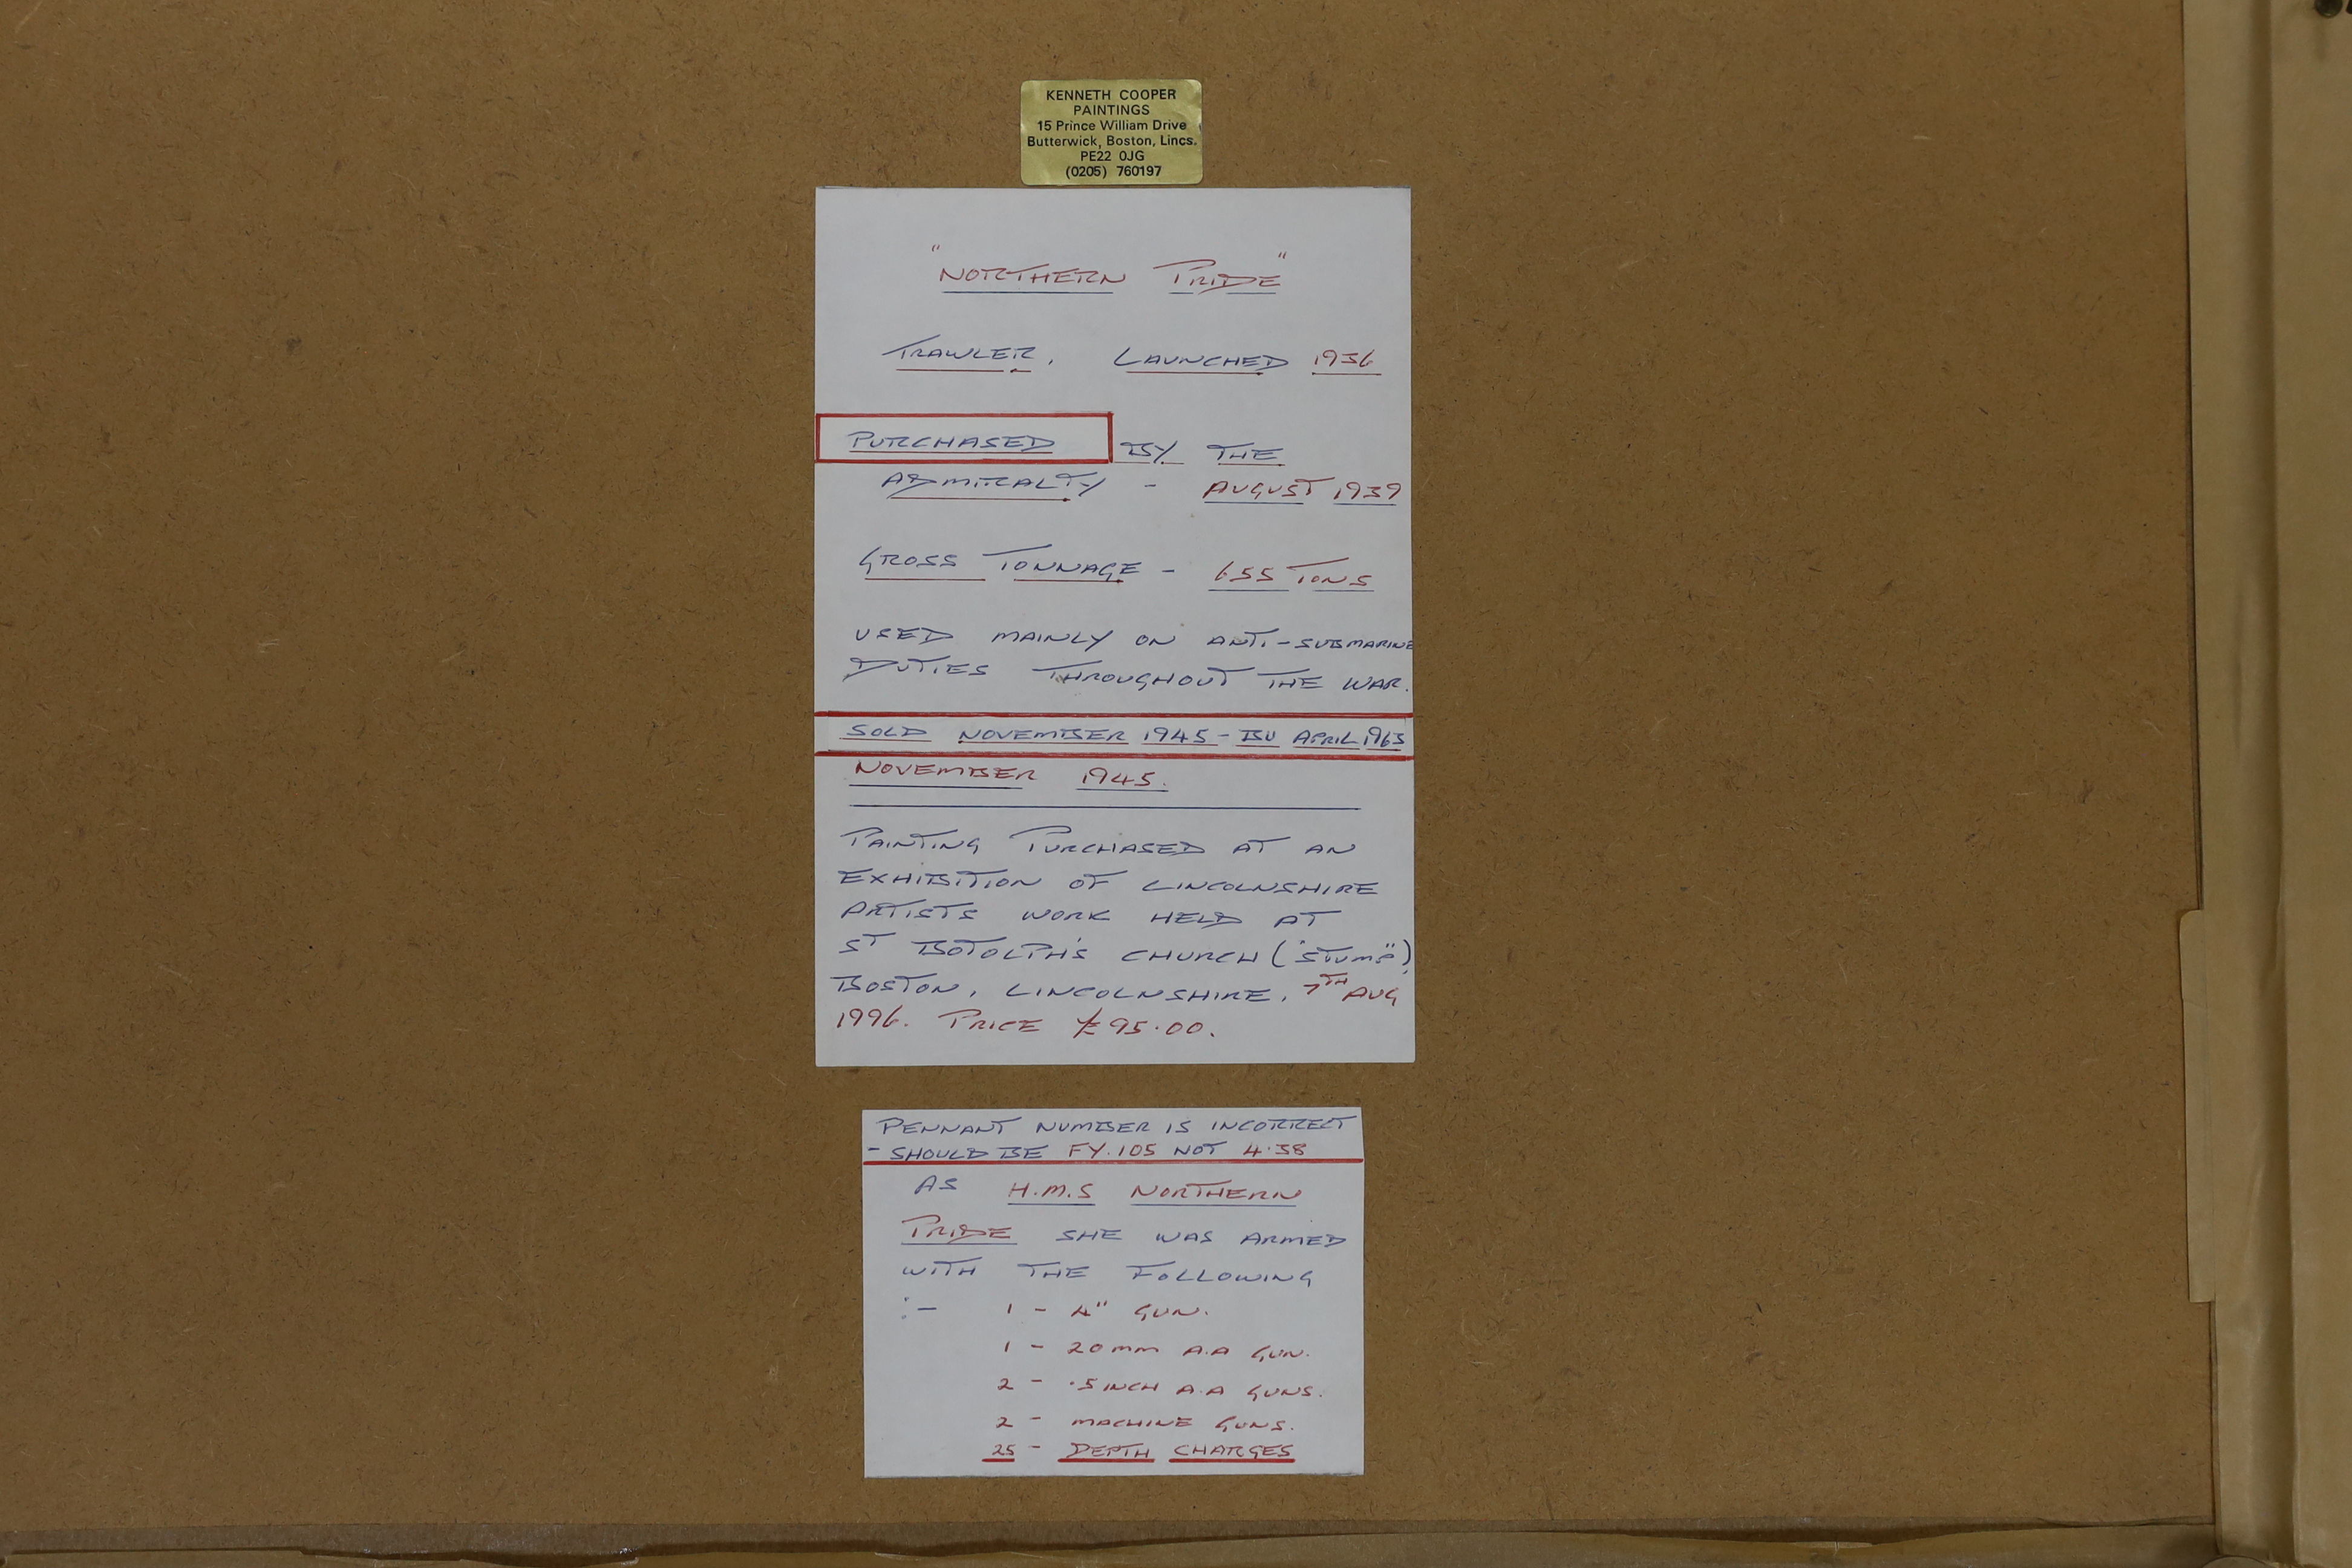 KENNETH COOPER
PAINTINGS
15 Prince William Drive
Butterwick, Boston, Lincs.
PE22 0JG
(0205) 760197
"NORTHERN PRIDE"
TRAWLER. LAUNCHED 1936
PURCHASED BY THE
ADMIRALTY - AUGUST 1939
GROSS TONNAGE - 655 TONS
USED MAINLY ON ANTI-SUBMARINE
DUTIES THROUGHOUT THE WAR.
SOLD NOVEMBER 1945 - BU APRIL 1963
NOVEMBER 1945.
PAINTING PURCHASED AT AN
EXHIBITION OF LINCOLNSHIRE
ARTISTS WORK HELD AT
ST BOTOLPH'S CHURCH ("STUMP"),
BOSTON, LINCOLNSHIRE, 7TH AUG
1996. PRICE £95.00.
PENNANT NUMBER IS INCORRECT
- SHOULD BE FY.105 NOT 4.38
AS H.M.S NORTHERN
PRIDE SHE WAS ARMED
WITH THE FOLLOWING
:- 1 - 4" GUN.
1 - 20mm A.A GUN.
2 - .5 INCH A.A GUNS.
2 - MACHINE GUNS.
25 - DEPTH CHARGES